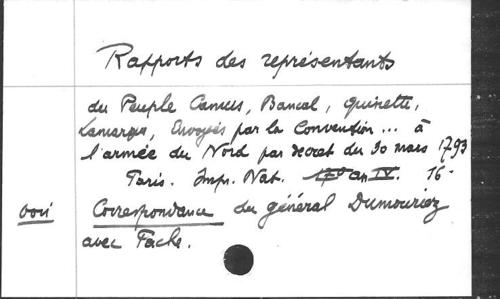 Rapports des représentants
du Peuple Camus, Bancal, Quinette,
Lamarque, Envoyés par la Convention ... à
l'armée du Nord par décret du 30 mars 1793
Paris. Imp. Nat. an IV. 16-
voir Correspondance du général Dumouriez
avec Pache.